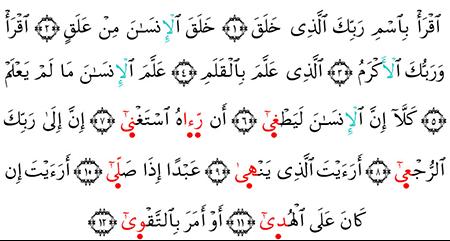 ٱقۡرَأۡ بِٱسۡمِ رَبِّكَ ٱلَّذِى خَلَقَ ﴿١﴾ خَلَقَ ٱلۡإِنسَـٰنَ مِنۡ عَلَقٍ ﴿٢﴾ ٱقۡرَأۡ
وَرَبُّكَ ٱلۡأَكۡرَمُ ﴿٣﴾ ٱلَّذِى عَلَّمَ بِٱلۡقَلَمِ ﴿٤﴾ عَلَّمَ ٱلۡإِنسَـٰنَ مَا لَمۡ يَعۡلَمۡ
﴿٥﴾ كَلَّآ إِنَّ ٱلۡإِنسَـٰنَ لَيَطۡغَىٰٓ ﴿٦﴾ أَن رَّءَاهُ ٱسۡتَغۡنَىٰٓ ﴿٧﴾ إِنَّ إِلَىٰ رَبِّكَ
ٱلرُّجۡعَىٰٓ ﴿٨﴾ أَرَءَيۡتَ ٱلَّذِى يَنۡهَىٰ ﴿٩﴾ عَبۡدًا إِذَا صَلَّىٰٓ ﴿١٠﴾ أَرَءَيۡتَ إِن
كَانَ عَلَى ٱلۡهُدَىٰٓ ﴿١١﴾ أَوۡ أَمَرَ بِٱلتَّقۡوَىٰٓ ﴿١٢﴾